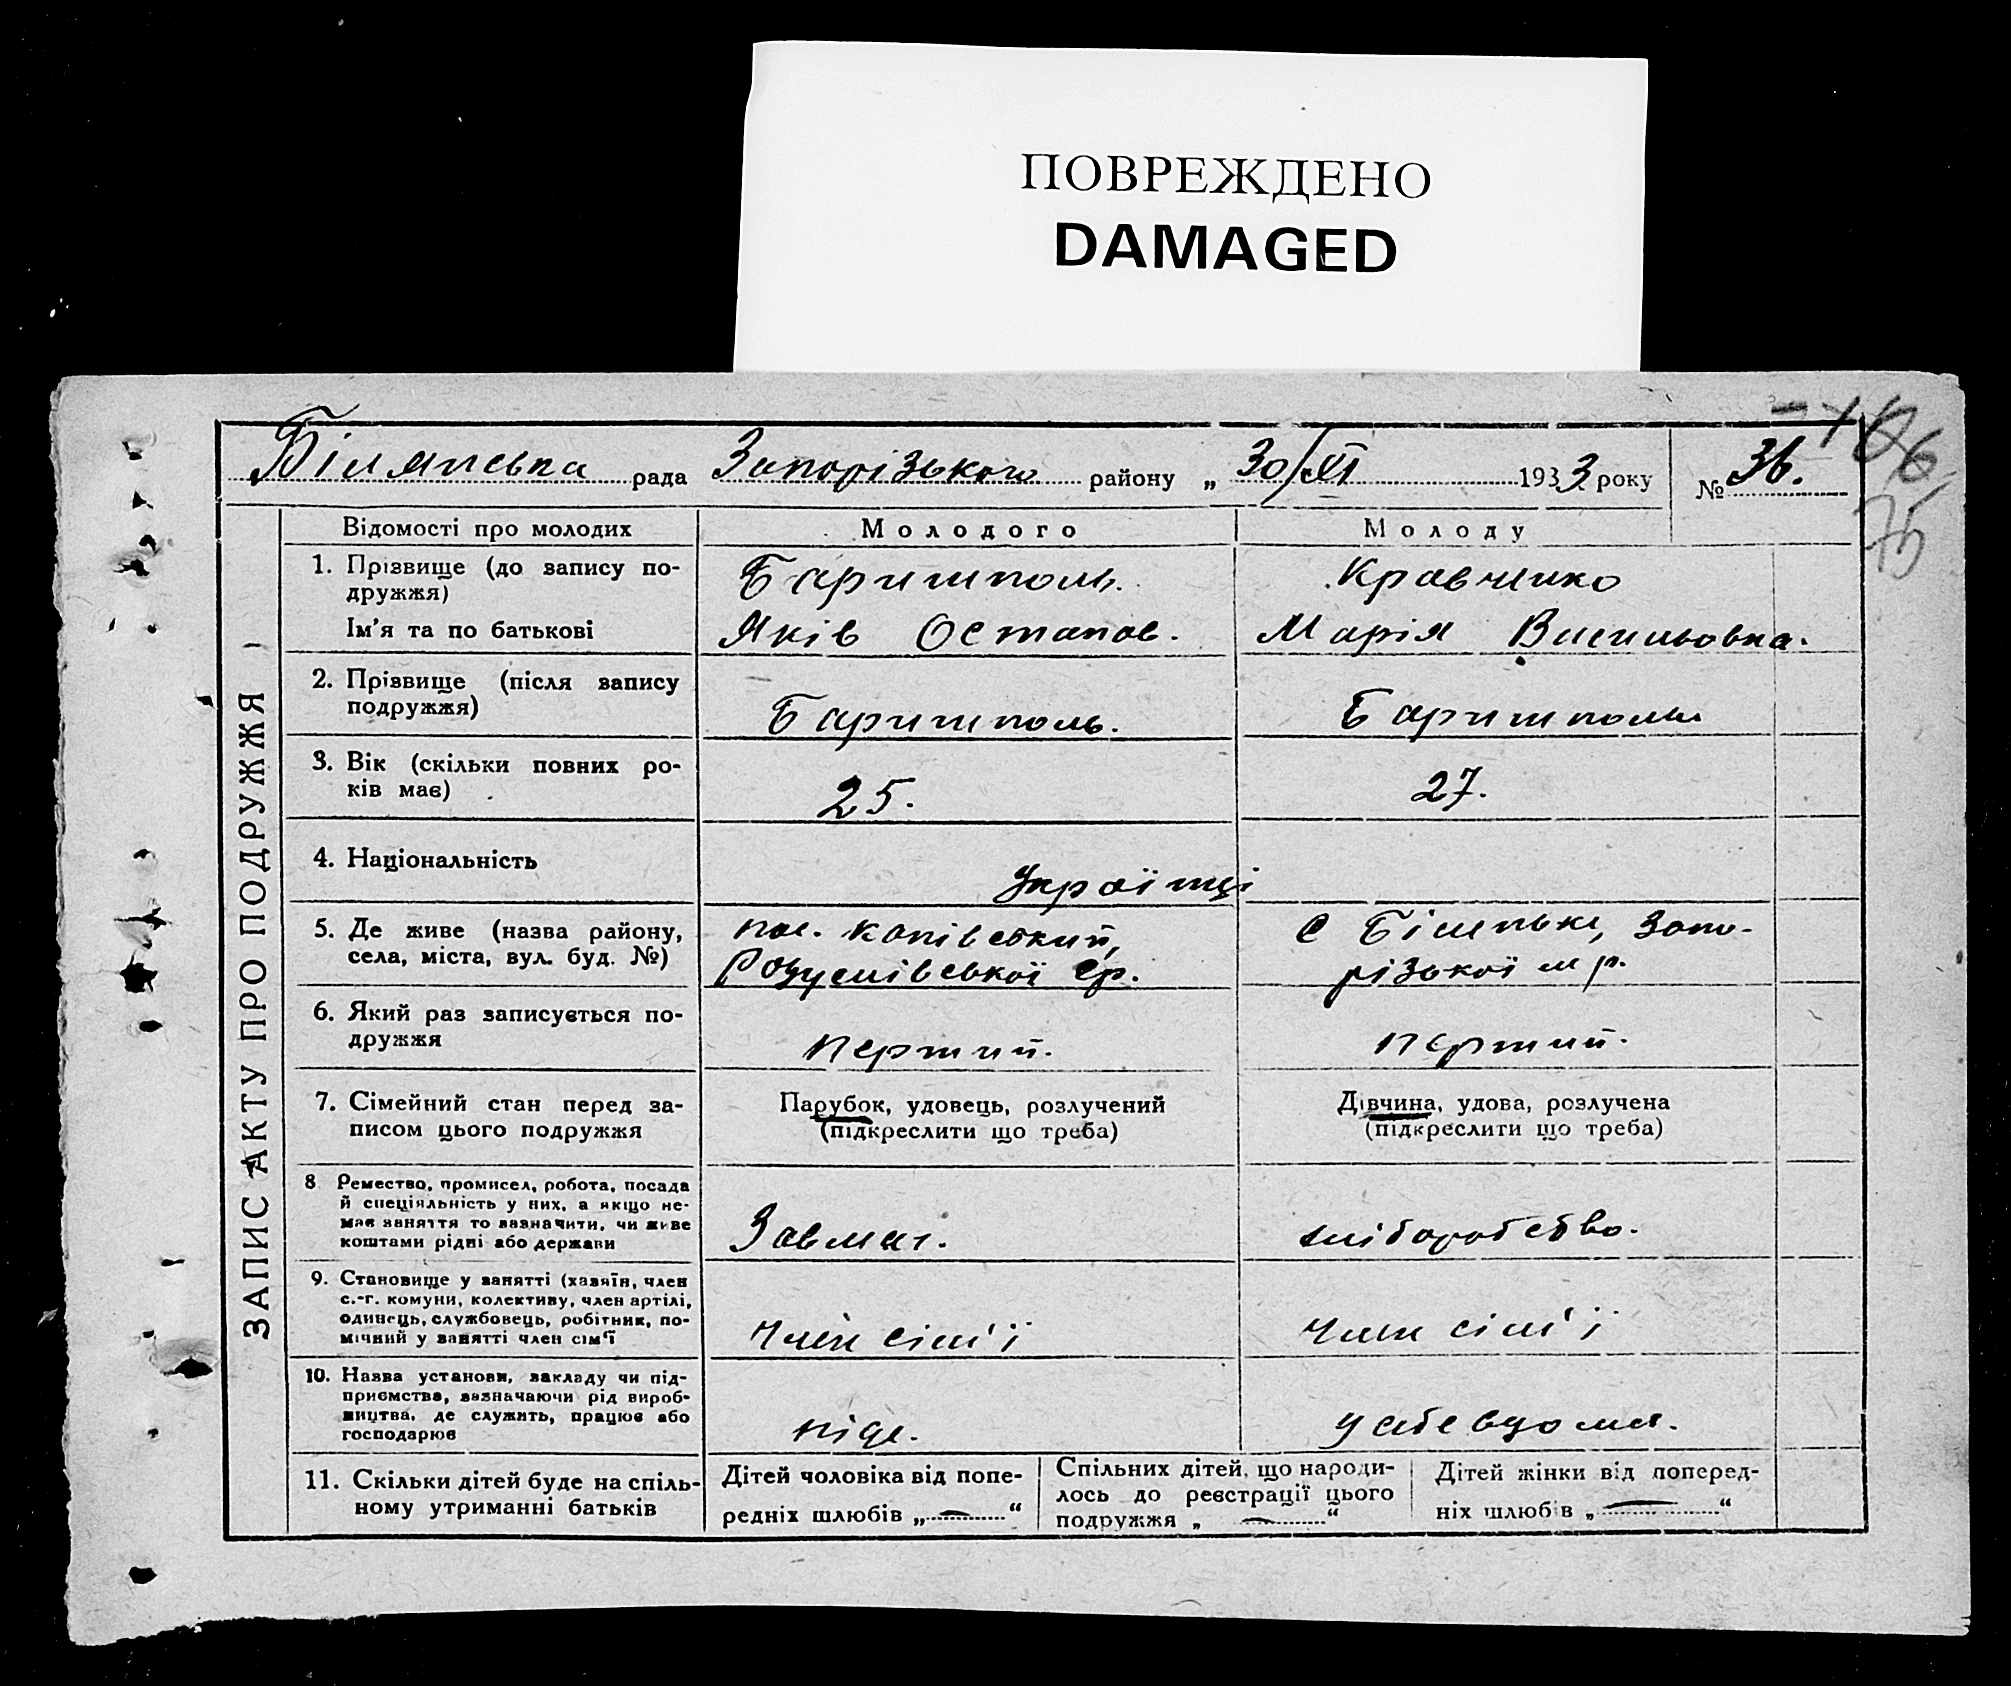 ПОВРЕЖДЕНО
DAMAGED
Білянська рада Запорізького району „ 30/XI 1933 року № 36.
ЗАПИС АКТУ ПРО ПОДРУЖЖЯ
Відомості про молодих Молодого Молоду
1. Прізвище (до запису по- Баришполь. Кравченко
дружжя)
Ім'я та по батькові Яків Остапов. Марія Васильовна.
2. Прізвище (після запису
подружжя) Баришполь. Баришполь
3. Вік (скільки повних ро-
ків має) 25. 27.
4. Національність Українці
5. Де живе (назва району, пос. Канівський, с Біленьке, Запо-
села, міста, вул. буд. №) Розумівської ср. різької мр.
6. Який раз записується по-
дружжя перший. перший.
7. Сімейний стан перед за- Парубок, удовець, розлучений Дівчина, удова, розлучена
писом цього подружжя (підкреслити що треба) (підкреслити що треба)
8 Ремество, промисел, робота, посада
й спеціяльність у них, а якщо не-
має заняття то зазначити, чи живе Завмаг. хліборобство.
коштами рідні або держави
9. Становище у занятті (хазяїн, член
с.-г. комуни, колективу, член артілі,
одинець, службовець, робітник, по- Член сім'ї Член сім'ї
мічний у занятті член сім'ї
10. Назва установи, закладу чи під-
приємства, зазначаючи рід вироб-
ництва, де служить, працює або ніде. у себе вдома.
господарює
11. Скільки дітей буде на спіль- Дітей чоловіка від попе- Спільних дітей, що народи- Дітей жінки від поперед-
ному утриманні батьків редніх шлюбів „ — “ лось до реєстрації цього ніх шлюбів „ — “
подружжя „ — “